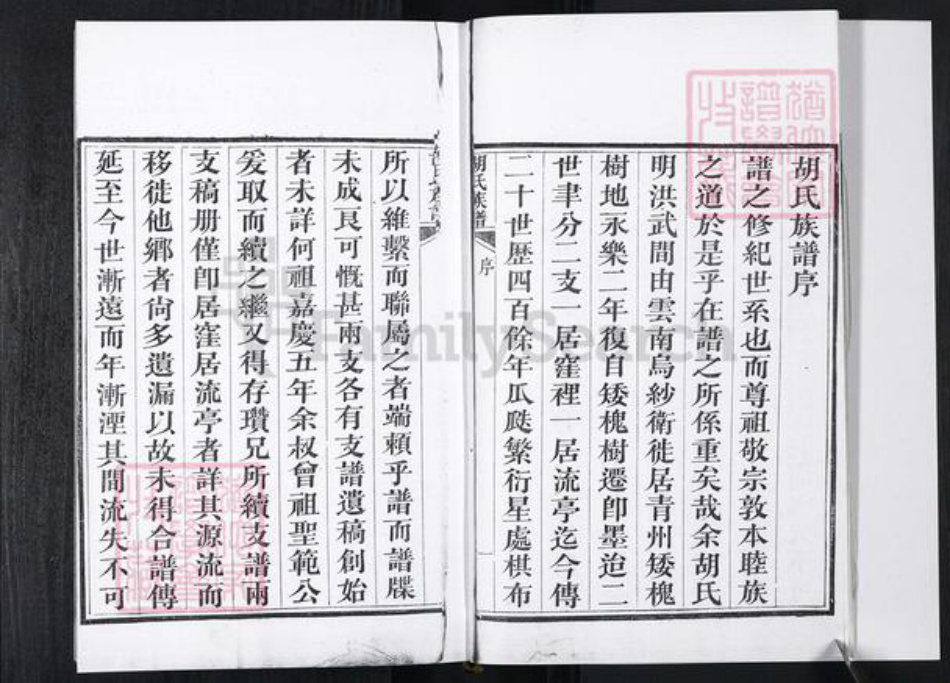 胡氏族譜序
譜之修紀世系也而尊祖敬宗敦本睦族
之道於是乎在譜之所係重矣哉余胡氏
明洪武間由雲南烏紗衛徙居青州矮槐
樹地永樂二年復自矮槐樹遷卽墨迨二
世聿分二支一居窪裡一居流亭迄今傳
二十世歴四百餘年瓜瓞繁衍星處棋布
胡氏族譜
序
所以維繫而聯屬之者端賴乎譜而譜牒
未成良可慨甚兩支各有支譜遺稿創始
者未詳何祖嘉慶五年余叔曾祖聖範公
爰取而續之繼又得存瓚兄所續支譜兩
支稿册僅卽居窪居流亭者詳其源流而
移徙他鄉者尙多遺漏以故未得合譜傳
延至今世漸遠而年漸湮其間流失不可
FamilySearch